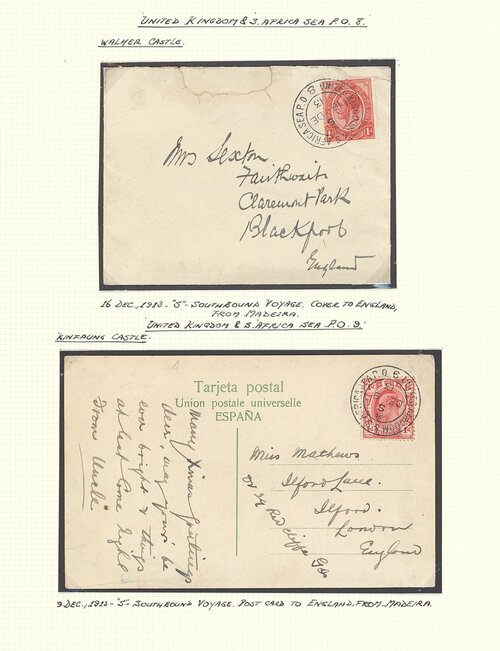 UNITED KINGDOM & S. AFRICA SEA P.O. 8.
WALMER CASTLE.
Mrs Sexton
Fairthwaite
Claremont Park
Blackpool
England
16 DEC., 1913 - "S" - SOUTHBOUND VOYAGE. COVER TO ENGLAND,
FROM MADEIRA.
UNITED KINGDOM & S. AFRICA SEA P.O. 9.
KINFAUNS CASTLE.
Tarjeta postal
Union postale universelle
ESPAÑA
Many Xmas Greetings
dear, may your's be
ever bright & things
at last come right
From Uncle
Miss Mathews
Ilford Lane.
Ilford.
London
England
9 DEC., 1913 - "S" - SOUTHBOUND VOYAGE. POST CARD TO ENGLAND, FROM MADEIRA.